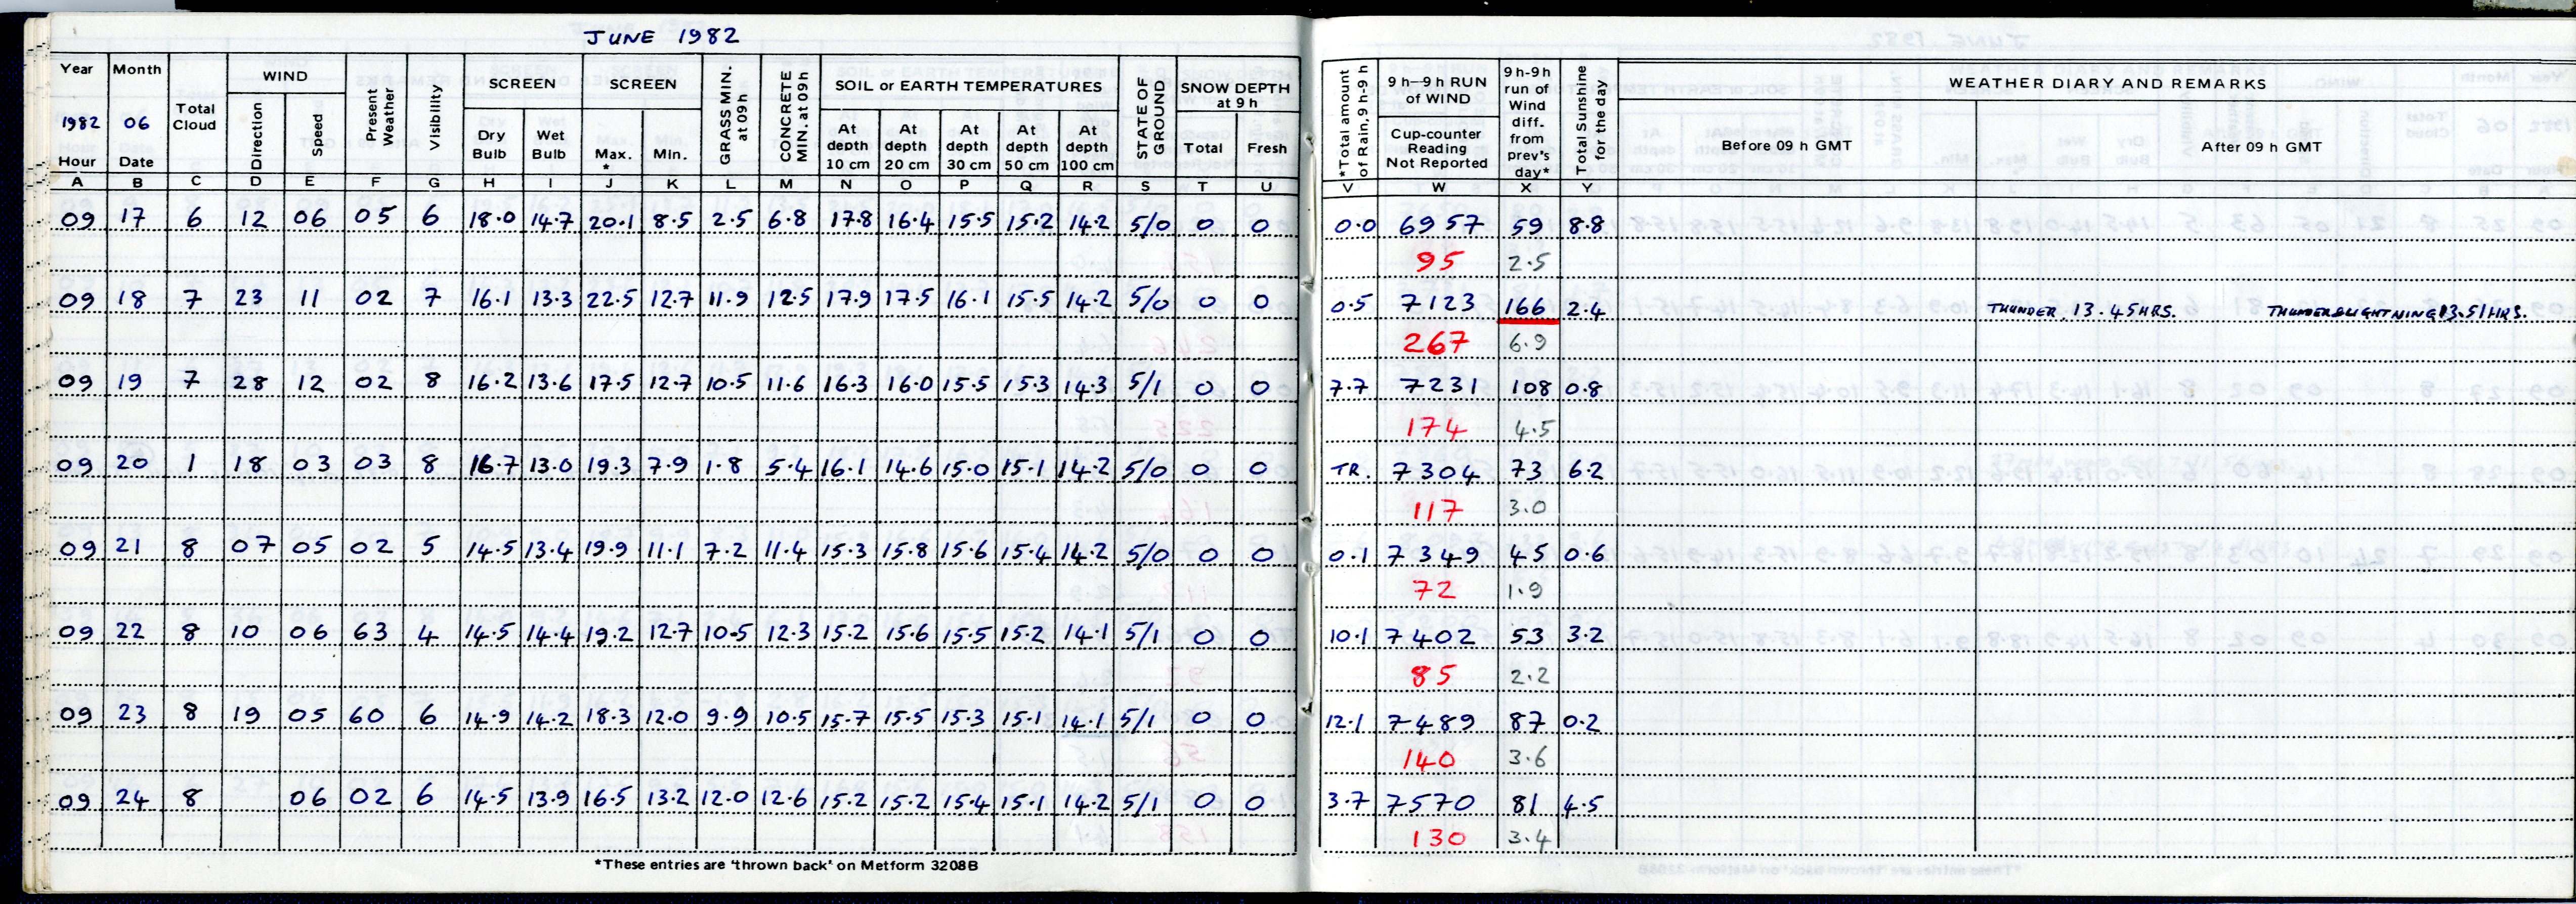 JUNE 1982
Year Month WIND SCREEN SCREEN SOIL or EARTH TEMPERATURES SNOW DEPTH at 9 h 9 h–9 h RUN of WIND 9 h-9 h run of Wind diff. from prev's day* WEATHER DIARY AND REMARKS
1982 06 Total Cloud Direction Speed Present Weather Visibility Dry Bulb Wet Bulb Max. * Min. GRASS MIN. at 09 h CONCRETE MIN. at 09 h At depth 10 cm At depth 20 cm At depth 30 cm At depth 50 cm At depth 100 cm STATE OF GROUND Total Fresh *Total amount of Rain, 9 h-9 h Cup-counter Reading Not Reported Total Sunshine for the day Before 09 h GMT After 09 h GMT
Hour Date
A B C D E F G H I J K L M N O P Q R S T U V W X Y
09 17 6 12 06 05 6 18.0 14.7 20.1 8.5 2.5 6.8 17.8 16.4 15.5 15.2 14.2 5/0 0 0 0.0 6957 59 8.8
95 2.5
09 18 7 23 11 02 7 16.1 13.3 22.5 12.7 11.9 12.5 17.9 17.5 16.1 15.5 14.2 5/0 0 0 0.5 7123 166 2.4 THUNDER, 13.45HRS. THUNDER&LIGHTNING 13.51HRS.
267 6.9
09 19 7 28 12 02 8 16.2 13.6 17.5 12.7 10.5 11.6 16.3 16.0 15.5 15.3 14.3 5/1 0 0 7.7 7231 108 0.8
174 4.5
09 20 1 18 03 03 8 16.7 13.0 19.3 7.9 1.8 5.4 16.1 14.6 15.0 15.1 14.2 5/0 0 0 TR. 7304 73 6.2
117 3.0
09 21 8 07 05 02 5 14.5 13.4 19.9 11.1 7.2 11.4 15.3 15.8 15.6 15.4 14.2 5/0 0 0 0.1 7349 45 0.6
72 1.9
09 22 8 10 06 63 4 14.5 14.4 19.2 12.7 10.5 12.3 15.2 15.6 15.5 15.2 14.1 5/1 0 0 10.1 7402 53 3.2
85 2.2
09 23 8 19 05 60 6 14.9 14.2 18.3 12.0 9.9 10.5 15.7 15.5 15.3 15.1 14.1 5/1 0 0 12.1 7489 87 0.2
140 3.6
09 24 8 06 02 6 14.5 13.9 16.5 13.2 12.0 12.6 15.2 15.2 15.4 15.1 14.2 5/1 0 0 3.7 7570 81 4.5
130 3.4
*These entries are 'thrown back' on Metform 3208B